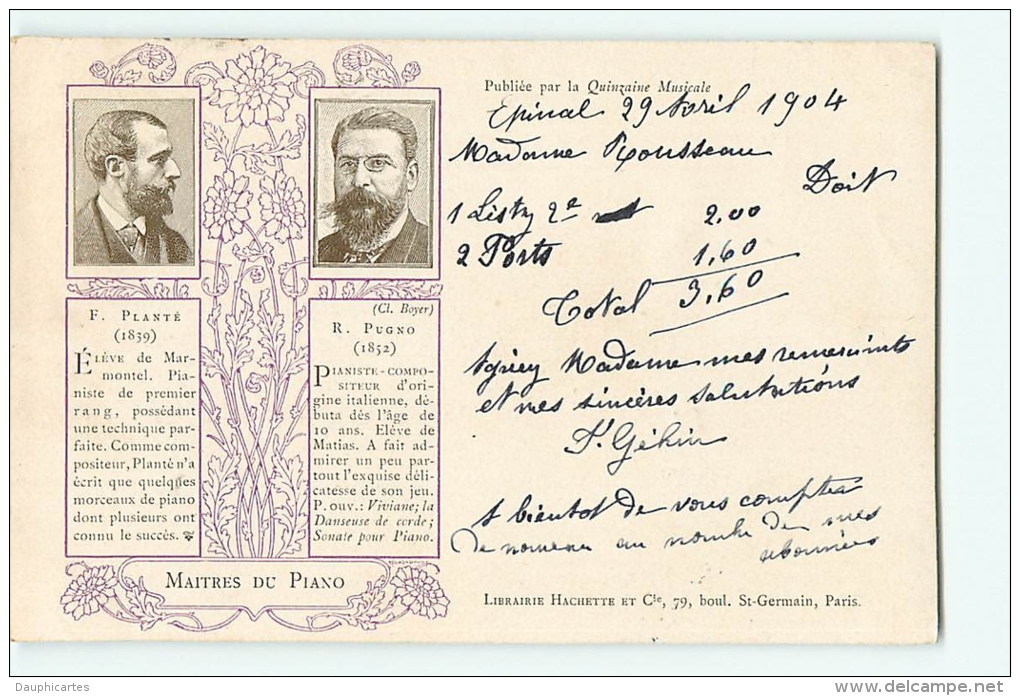 F. PLANTÉ
(1839)
ÉLÈVE de Mar-
montel. Pia-
niste de premier
rang, possédant
une technique par-
faite. Comme com-
positeur, Planté n'a
écrit que quelques
morceaux de piano
dont plusieurs ont
connu le succès.
(Cl. Boyer)
R. PUGNO
(1852)
PIANISTE-COMPO-
SITEUR d'ori-
gine italienne, dé-
buta dès l'âge de
10 ans. Elève de
Matias. A fait ad-
mirer un peu par-
tout l'exquise déli-
catesse de son jeu.
P. ouv.: Viviane; la
Danseuse de corde;
Sonate pour Piano.
MAITRES DU PIANO
Publiée par la Quinzaine Musicale
Epinal 29 Avril 1904
Madame Rousseau
Doit
1 Listz 2e 2.00
2 Ports 1,60
Total 3,60
Agréez Madame mes remerciments
et mes sincères salutations
Géhin
A bientot de vous compter
de nouveau au nombre de mes
abonnées
LIBRAIRIE HACHETTE ET Cie, 79, boul. St-Germain, Paris.
Dauphicartes
www.delcampe.net